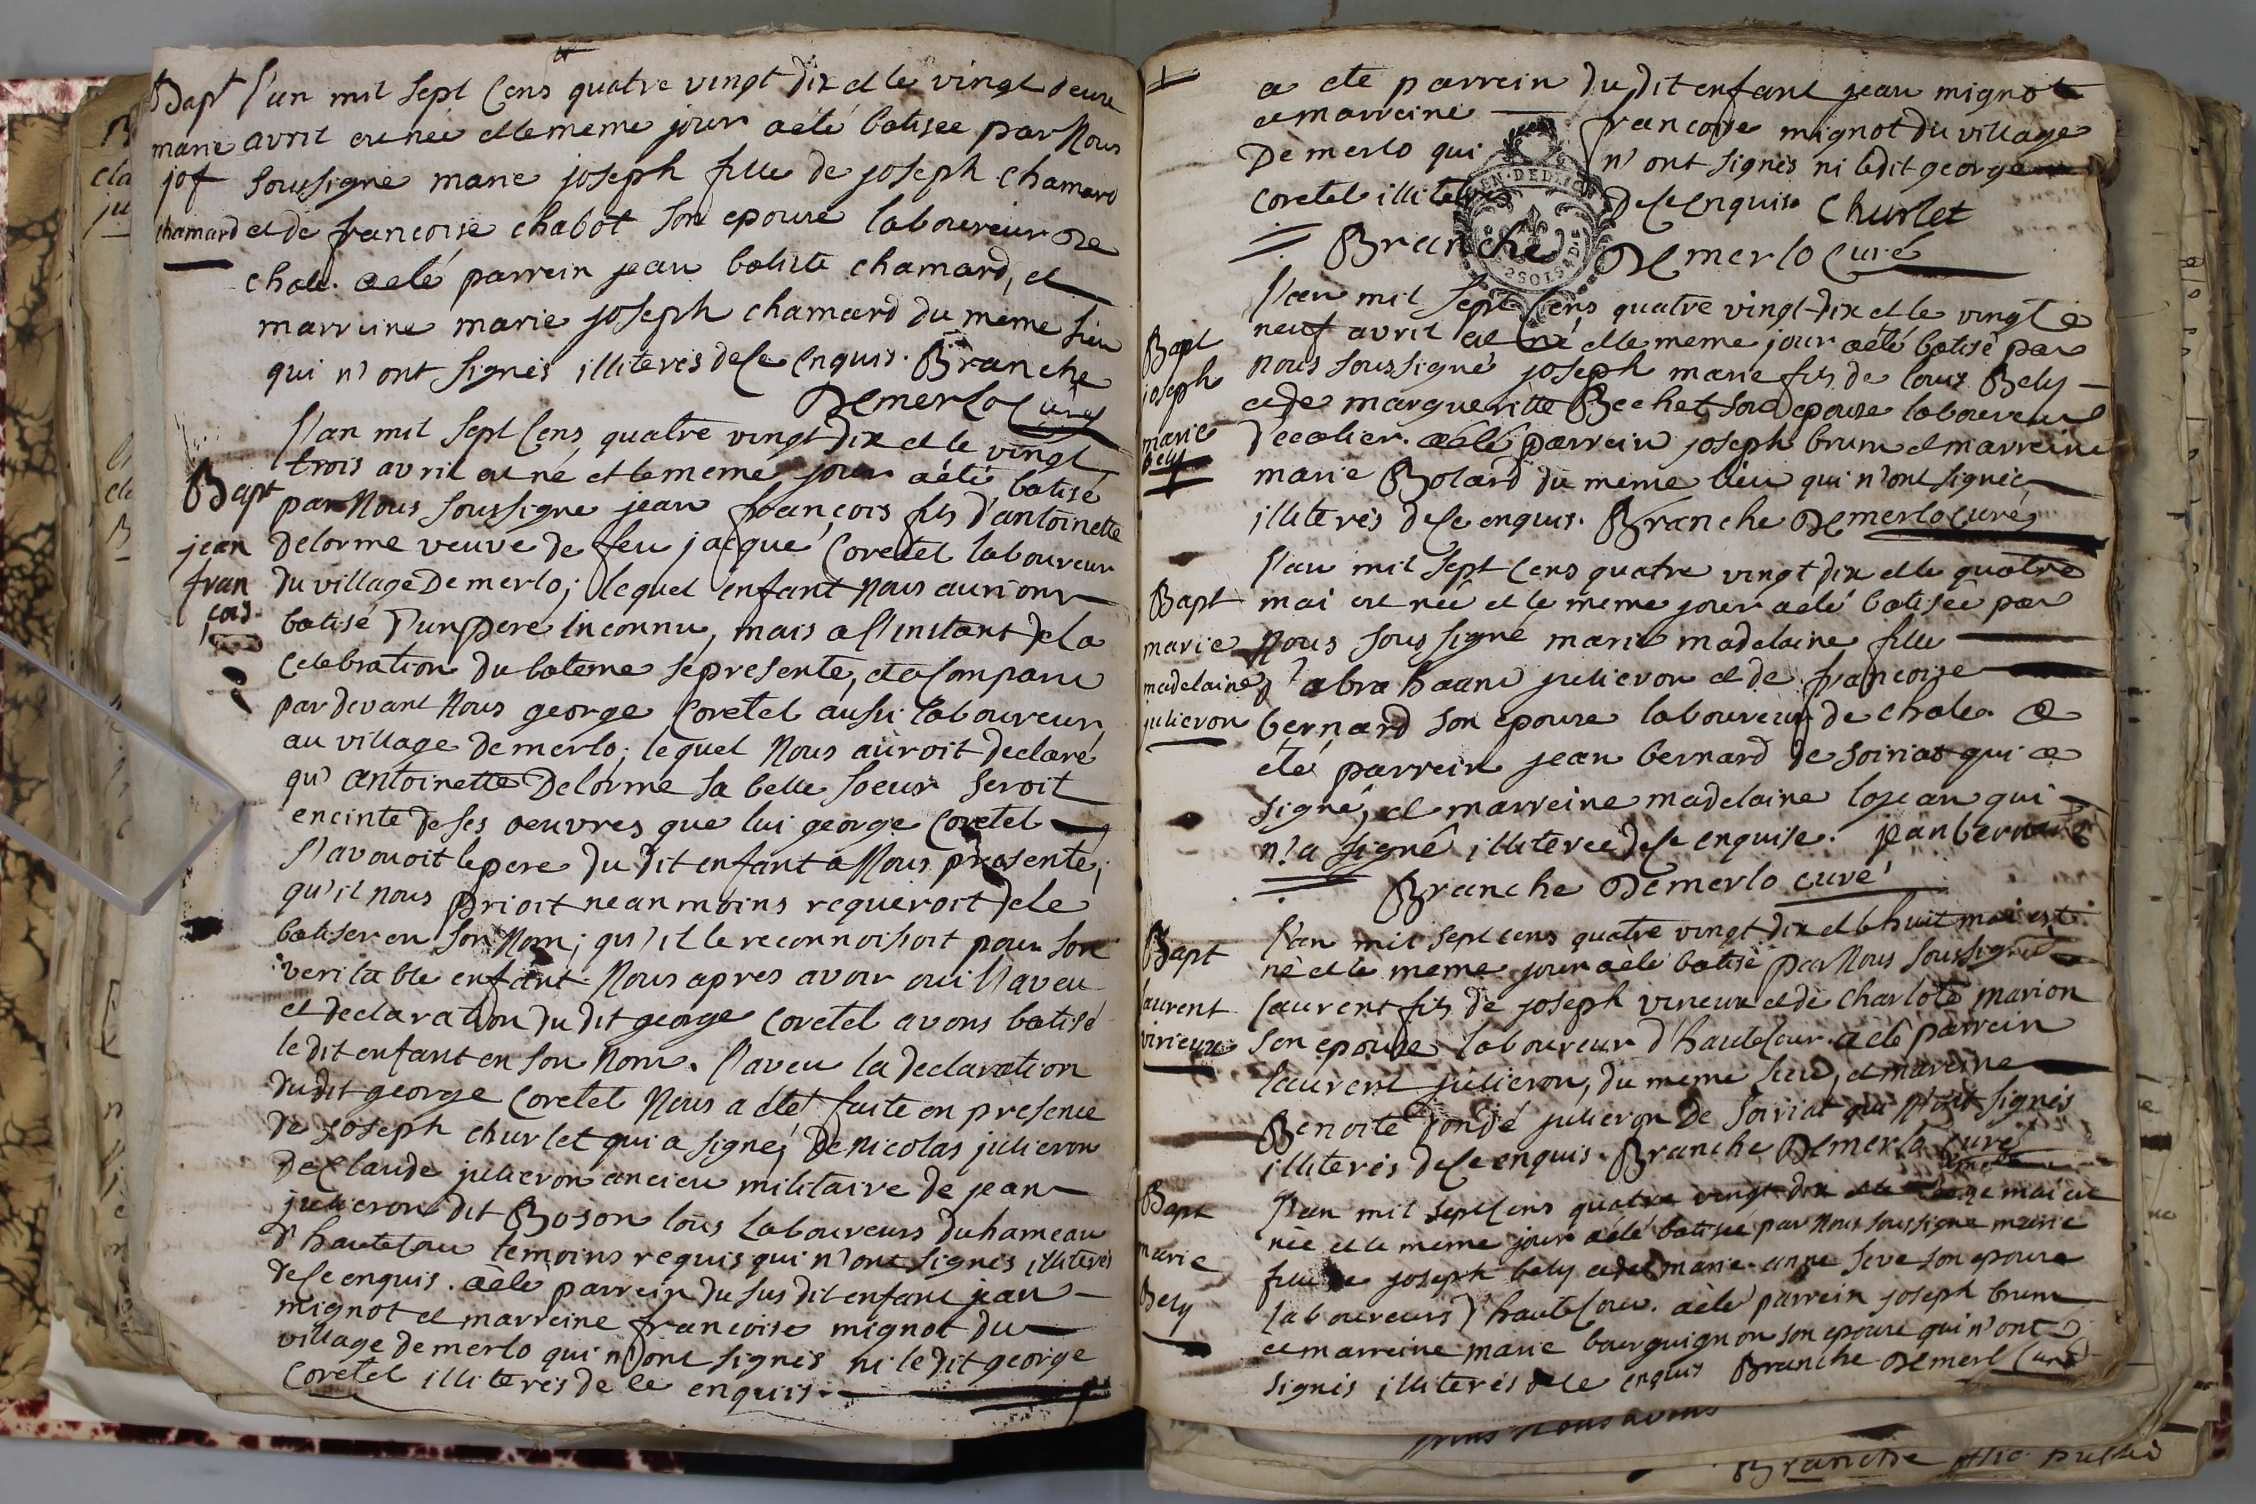 Bapt
marie
jos
chamard
l'an mil sept cens quatre vingt dix et le vingt deux
avril est née et le meme jour a été batisee par Nous
soussigné marie joseph fille de joseph chamard
et de francoise chabot son epouse laboureur de
chale. a eté parrein jean batiste chamard, et
marreine marie joseph chamard du meme lieu
qui n'ont signés illiterés de ce enquis. Branche
Demerlo curé
Bapt
jean
fran
çois
l'an mil sept cens quatre vingt dix et le vingt
trois avril est né et le meme jour a été batisé
par Nous soussigne jean françois fils d'antoinette
delorme veuve de feu jacque coretel laboureur
du village De merlo; lequel enfant Nous aurions
batisé d'un pere inconnu, mais a l'instant de la
celebration du bateme se presente, et a comparu
par devant Nous george coretel aussi laboureur
au village de merlo; lequel Nous auroit declaré
qu'antoinette Delorme sa belle soeur seroit
enceinte de ses oeuvres que lui george coretel
s'avouoit le pere du dit enfant a Nous presenté;
qu'il nous prioit neanmoins requeroit de le
batiser en son Nom; qu'il le reconnoissoit pour son
veritable enfant. Nous apres avoir oui l'aveu
et declaration du dit george coretel avons batisé
le dit enfant en son Nom. l'aveu la declaration
du dit george coretel Nous a eté faite en presence
de joseph churlet qui a signé, De nicolas julieron
De claude julieron ancien militaire de jean
julieron dit Boson tous laboureurs du hameau
d'hautecour temoins requis qui n'ont signés illiterés
de ce enquis. a ete parrein du susdit enfant jean
mignot et marreine francoise mignot du
village de merlo qui n'ont signés ni le dit george
coretel illiterés de ce enquis.
a ete parrein du dit enfant jean mignot
et marreine francoise mignot du village
De merlo qui n'ont signés ni le dit george
coretel illiterés de ce enquis churlet
Branche Demerlo curé
Bapt
joseph
marie
bely
l'an mil sept cens quatre vingt dix et le vingt
neuf avril est né et le meme jour a été batisé par
nous soussigné joseph marie fils de louis Bely
et de margueritte Bechet son epouse laboureur
a été parrein joseph brun et marreine
marie Bolard du meme lieu qui n'ont signés
illiterés de ce enquis. Branche Demerlo curé
Bapt
marie
madelaine
julieron
l'an mil sept cens quatre vingt dix et le quatre
mai est née et le meme jour a été batisée par
Nous soussigné marie madelaine fille
d'abrahaam julieron et de françoise
bernard son epouse laboureur de chale. a
été parrein jean bernard de soiriat qui a
signé, et marreine madelaine losean qui
n'a signé illiterée de ce enquise. jean bernard
Branche Demerlo curé
Bapt
laurent
virieux
l'an mil sept cens quatre vingt dix et le huit mai est
né et le meme jour a été batisé par Nous soussigné
laurent fils de joseph virieux et de charlote marion
son epouse laboureur d'hautecour. a été parrein
laurent julieron, du meme lieu, et mareine
Benoite julieron De soiriat qui n'ont signés
illiterés de ce enquis. Branche Demerlo curé
Bapt
marie
Bely
l'an mil sept cens quatre vingt dix et le mai est
née et le meme jour a été batisée par Nous soussigne marie
fille de joseph bely et de marie anne seve son epouse
laboureurs d'hautecour. a été parrein joseph brun
et marreine marie bourguignon son epouse qui n'ont
signés illiterés de ce enquis Branche Demerlo curé
nous avons
Branche